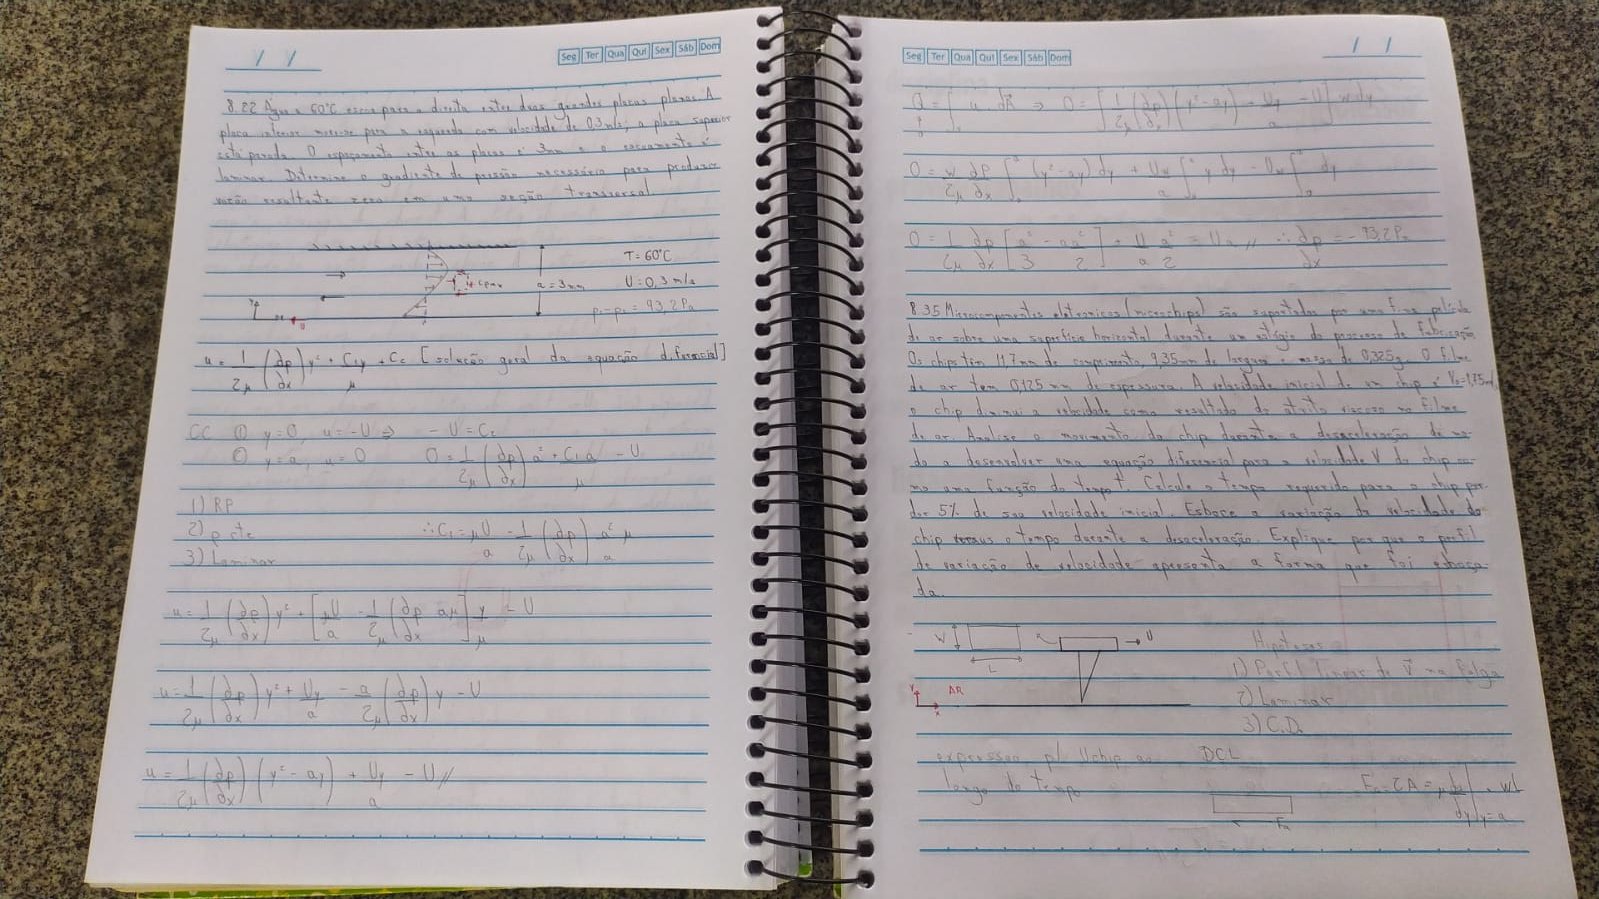 / /
Seg Ter Qua Qui Sex Sáb Dom
8.22 Água a 60°C escoa para a direita entre duas grandes placas planas. A
placa inferior move-se para a esquerda com velocidade de 0,3 m/s; a placa superior
está parada. O espaçamento entre as placas é 3mm e o escoamento é
laminar. Determine o gradiente de pressão necessário para produzir
vazão resultante zero em uma seção transversal.
T = 60°C
a = 3mm
U = 0,3 m/s
p₁-p₂ = 93,2 Pa
u = 1/2μ (∂p/∂x) y² + C₁y/μ + C₂ [solução geral da equação diferencial]
CC ① y=0, u=-U ⇒ -U = C₂
② y=a, u=0 0 = 1/2μ (∂p/∂x) a² + C₁a/μ - U
1) RP
2) ρ cte
∴ C₁ = μU/a - 1/2μ (∂p/∂x) a²/a μ
3) Laminar
u = 1/2μ (∂p/∂x) y² + [μU/a - 1/2μ (∂p/∂x aμ] y/μ - U
u = 1/2μ (∂p/∂x) y² + Uy/a - a/2μ (∂p/∂x) y - U
u = 1/2μ (∂p/∂x) (y² - ay) + Uy/a - U //
Seg Ter Qua Qui Sex Sáb Dom
/ /
Q = ∫ u dA ⇒ 0 = ∫ [1/2μ (∂p/∂x) (y² - ay) + Uy/a - U] w dy
0 = w/2μ ∂p/∂x ∫ (y² - ay) dy + Uw/a ∫ y dy - Uw ∫ dy
0 = 1/2μ ∂p/∂x [a³/3 - a a²/2] + U/a a²/2 = Ua // ∴ ∂p/∂x = -93,2 Pa
8.35 Microcomponentes eletronicos (microchips) são suportados por uma fina película
de ar sobre uma superfície horizontal durante um estágio do processo de fabricação.
Os chips têm 11,7 mm de comprimento, 9,35 mm de largura e massa de 0,325g. O filme
de ar tem 0,125 mm de espessura. A velocidade inicial de um chip é V₀=1,75m/s
o chip diminui a velocidade como resultado do atrito viscoso no filme
de ar. Analise o movimento do chip durante a desaceleração de mo-
do a desenvolver uma equação diferencial para a velocidade V do chip co-
mo uma função do tempo t. Calcule o tempo requerido para o chip per-
der 5% de sua velocidade inicial. Esboce a variação da velocidade do
chip versus o tempo durante a desaceleração. Explique por que o perfil
de variação de velocidade apresenta a forma que foi esboça-
da.
W
L
U
Hipóteses
1) Perfil linear de V na folga
AR
2) Laminar
3) C.D.
expressão p/ Uchip ao
longo do tempo
DCL
Fμ = τA = μ du/dy|y=a · WL
Fμ